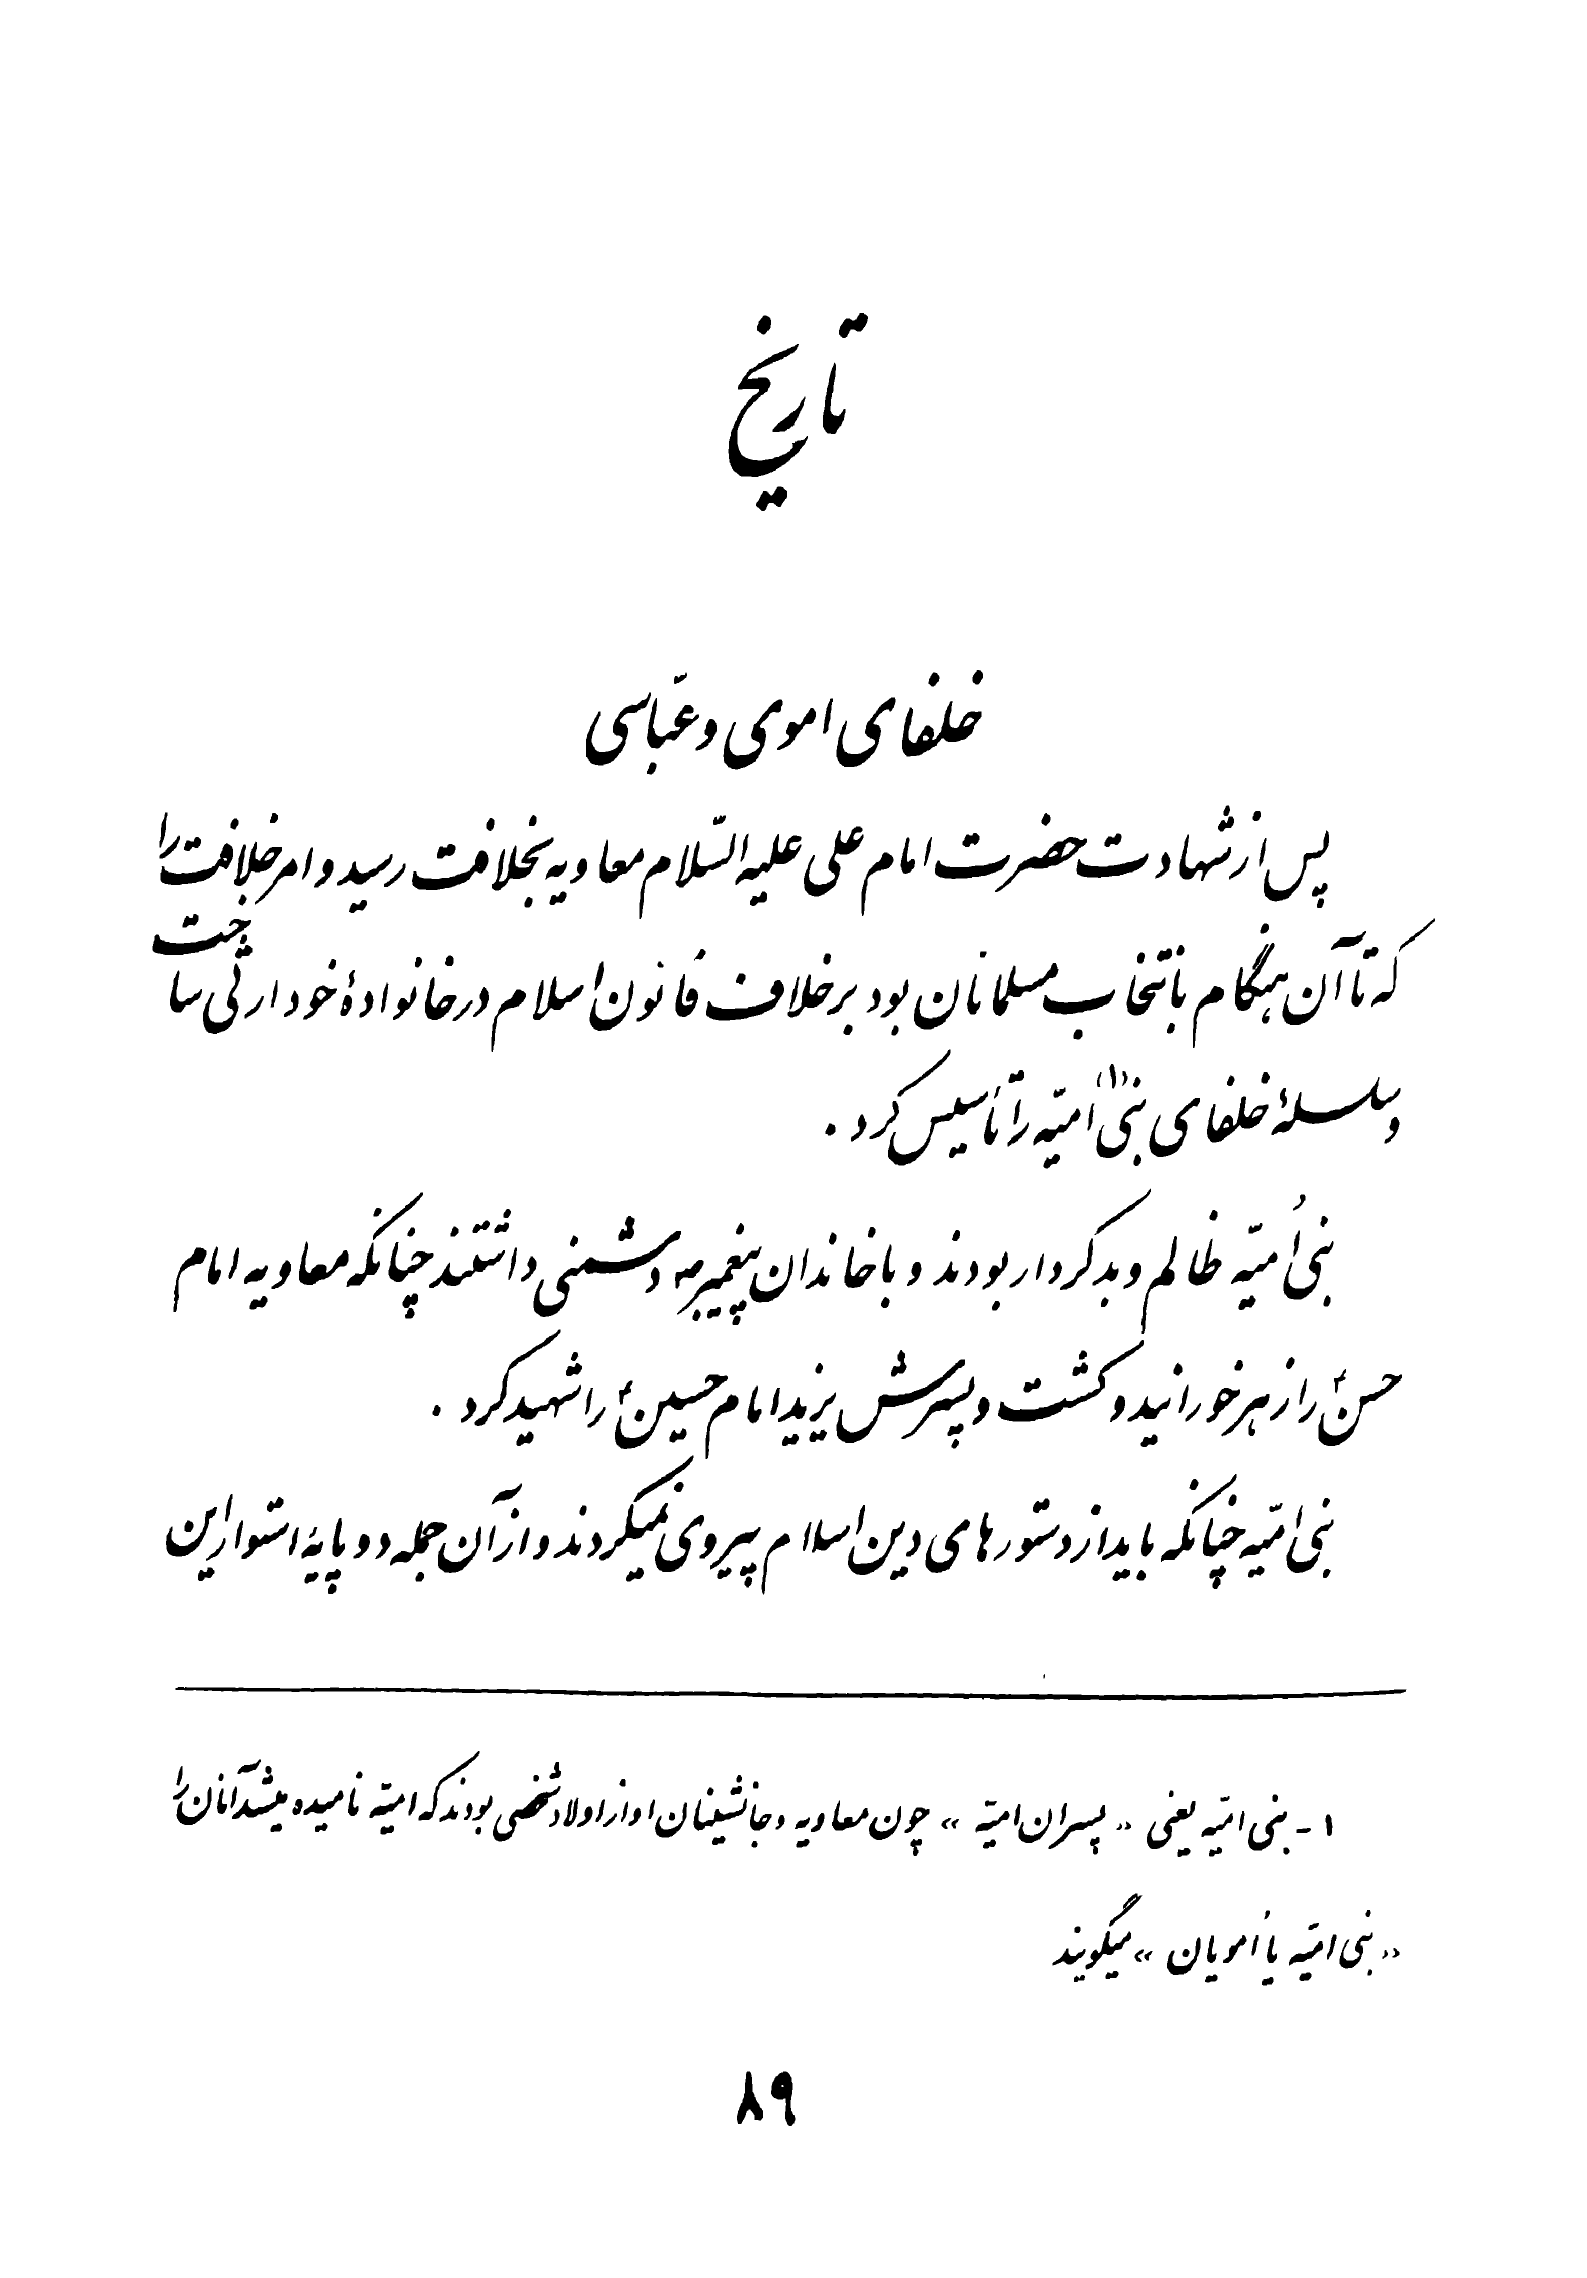 تاریخ
خلفای اموی و عبّاسی
پس از شهادت حضرت امام علی علیه السّلام معاویه بخلافت رسید و امر خلافت را
که تا آن هنگام با نتخاب مسلمانان بود برخلاف قانون اسلام در خانوادهٔ خود ارثی ساخت
و سلسلهٔ خلفای بنی اُمیّه (۱) را تأسیس کرد .
بنی اُمیّه ظالم و بدکردار بودند و با خاندان پیغمبر ص دشمنی داشتند چنانکه معاویه امام
حسن ع را زهر خورانید و کشت و پسرش یزید امام حسین ع را شهید کرد .
بنی اُمیّه چنانکه باید از دستورهای دین اسلام پیروی نمیکردند و از آن جمله دو پایهٔ استوار این
۱ - بنی امیّه یعنی « پسران امیّه » چون معاویه و جانشینان او از اولاد شخصی بودند که امیّه نامیده میشد آنان را
« بنی امیّه یا اُمویان » میگویند
۸۹